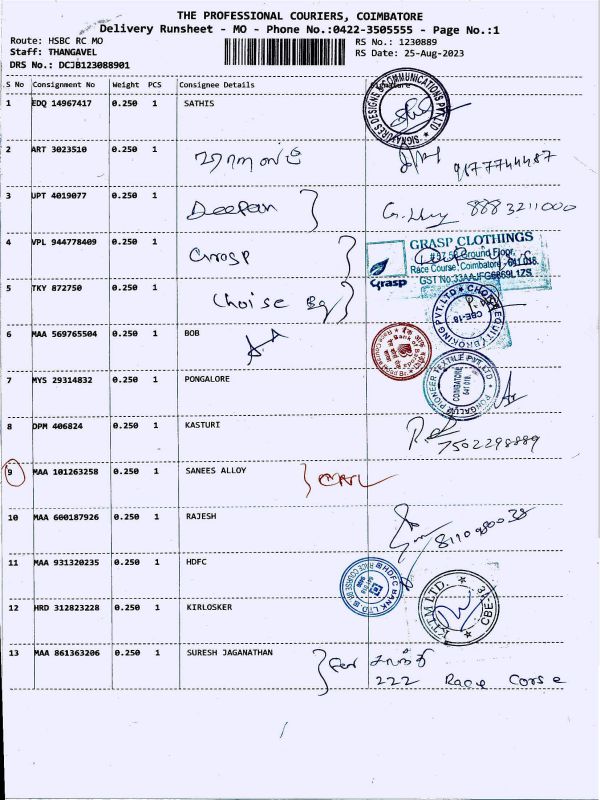 THE PROFESSIONAL COURIERS, COIMBATORE
Delivery Runsheet - MO - Phone No.:0422-3505555 - Page No.:1
Route: HSBC RC MO RS No.: 1230889
Staff: THANGAVEL RS Date: 25-Aug-2023
DRS No.: DCJB123088901
S No Consignment No Weight PCS Consignee Details Signature
1 EDQ 14967417 0.250 1 SATHIS
SIGNATURES DESIGNS & COMMUNICATIONS PVT. LTD
2 ART 3023510 0.250 1
9177744487
3 UPT 4019077 0.250 1 Deepan
8883211000
4 VPL 944778409 0.250 1 Grasp
GRASP CLOTHINGS
Ground Floor,
Race Course, Coimbatore - 641 018.
Grasp
5 TKY 872750 0.250 1 Choise Eq
CBE-18
6 MAA 569765504 0.250 1 BOB
7 MYS 29314832 0.250 1 PONGALORE
PIONEER TEXTILE PVT. LTD
COIMBATORE
641 018.
8 DPM 406824 0.250 1 KASTURI
7502298889
9 MAA 101263258 0.250 1 SANEES ALLOY
10 MAA 600187926 0.250 1 RAJESH
11 MAA 931320235 0.250 1 HDFC
HDFC BANK LTD
RACE COURSE
12 HRD 312823228 0.250 1 KIRLOSKER
LTD.
CBE
13 MAA 861363206 0.250 1 SURESH JAGANATHAN
222 Race Corse